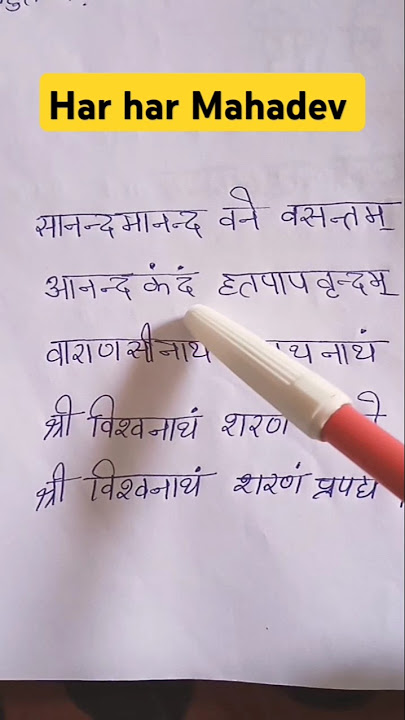 Har har Mahadev
सानन्दमानन्द वने वसन्तम्
आनन्द कंदं हतपाप वृन्दम्
वाराणसीनाथ नाथं
श्री विश्वनाथं शरण
श्री विश्वनाथं शरणं प्रपद्ये